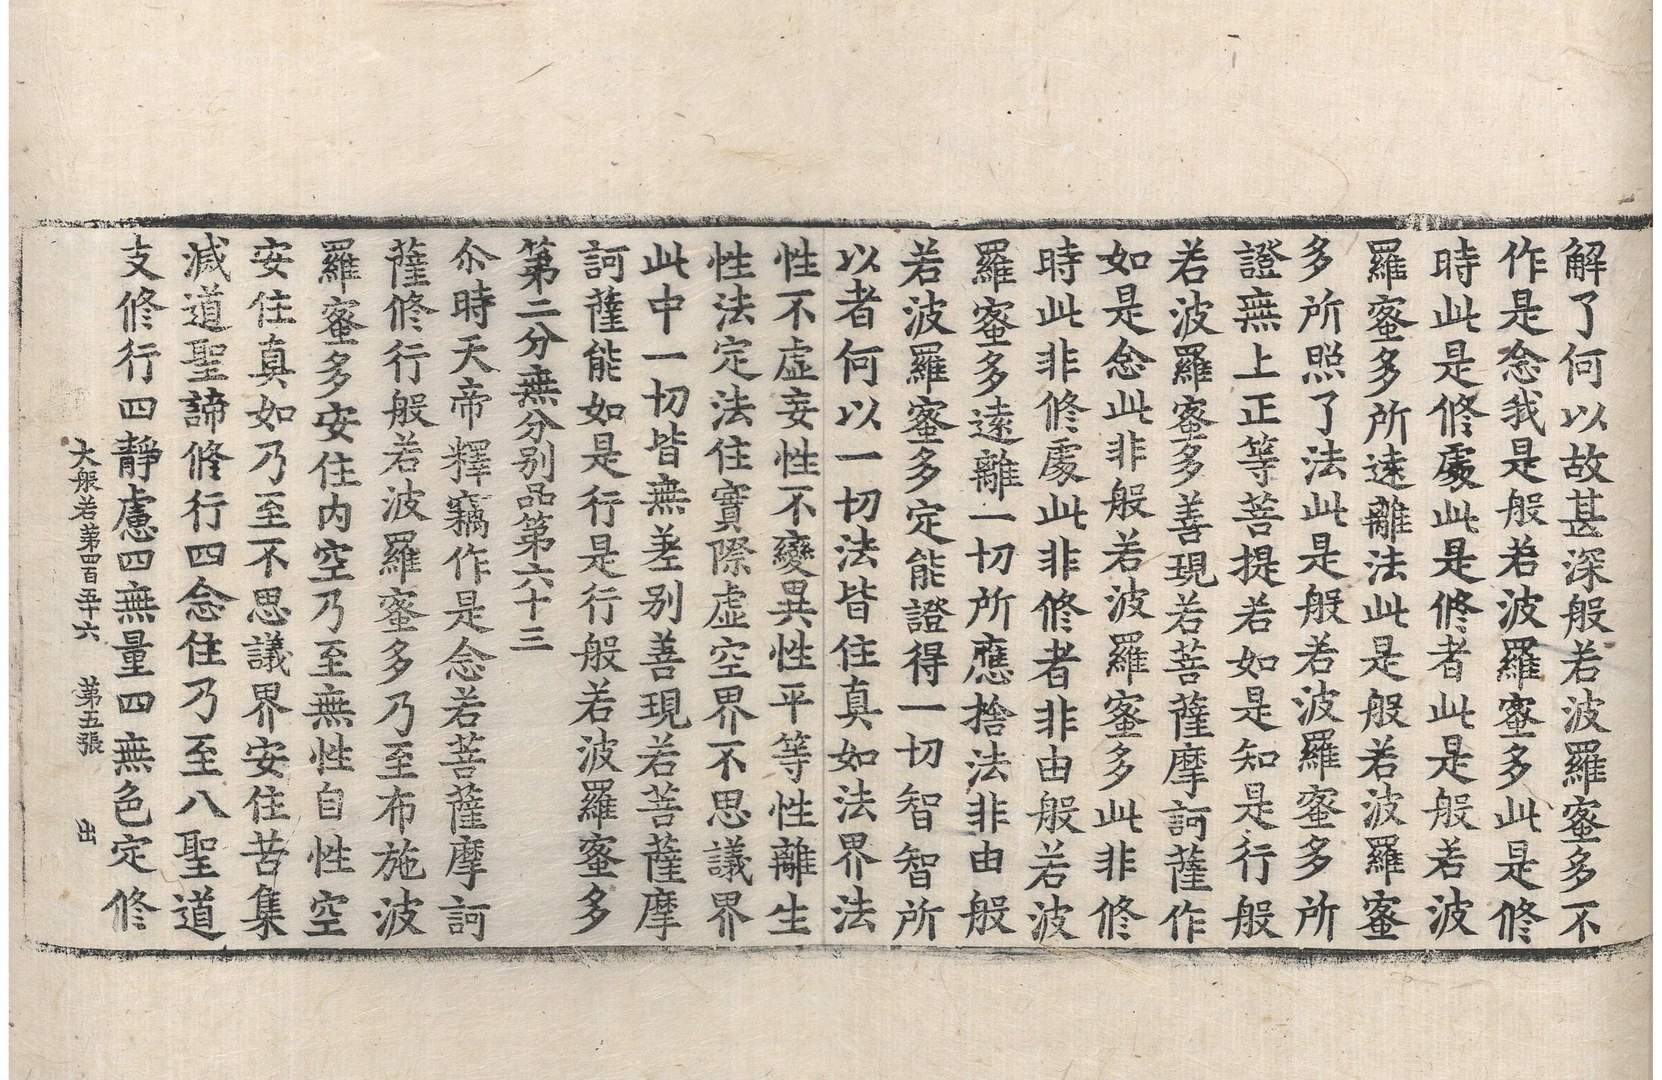 解了何以故甚深般若波羅蜜多不
作是念我是般若波羅蜜多此是修
時此是修處此是修者此是般若波
羅蜜多所遠離法此是般若波羅蜜
多所照了法此是般若波羅蜜多所
證無上正等菩提若如是知是行般
若波羅蜜多善現若菩薩摩訶薩作
如是念此非般若波羅蜜多此非修
時此非修處此非修者非由般若波
羅蜜多遠離一切所應捨法非由般
若波羅蜜多定能證得一切智智所
以者何以一切法皆住真如法界法
性不虛妄性不變異性平等性離生
性法定法住實際虛空界不思議界
此中一切皆無差別善現若菩薩摩
訶薩能如是行是行般若波羅蜜多
第二分無分别品第六十三
尒時天帝釋竊作是念若菩薩摩訶
薩修行般若波羅蜜多乃至布施波
羅蜜多安住内空乃至無性自性空
安住真如乃至不思議界安住苦集
滅道聖諦修行四念住乃至八聖道
支修行四靜慮四無量四無色定修
大般若第四百五十六 第五張 出